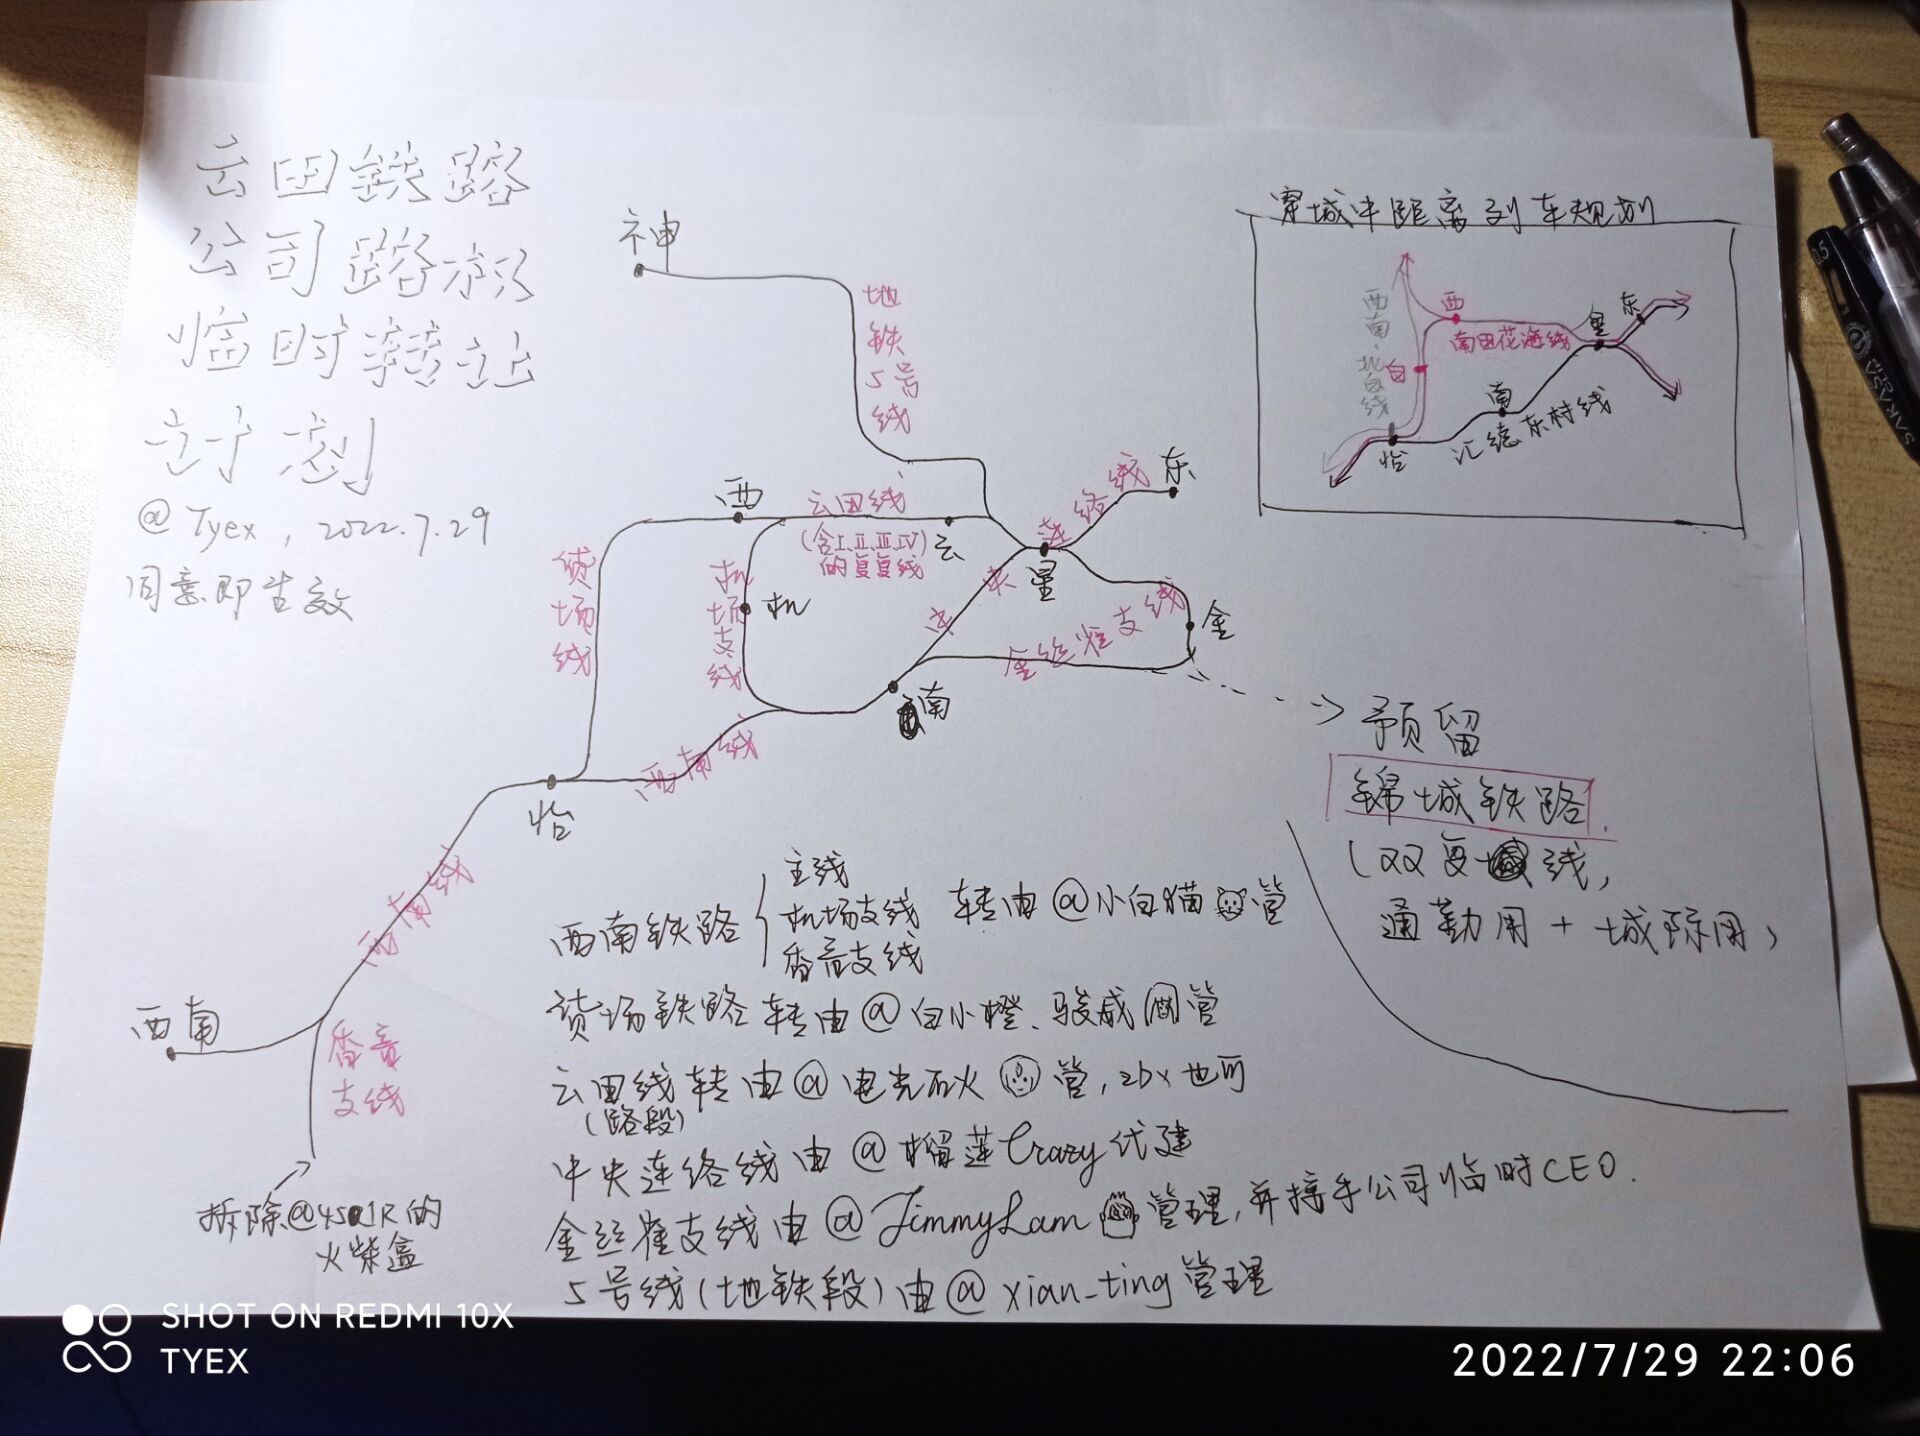 云田铁路
公司路权
临时转让
计划
@Tyex, 2022.7.29
同意即生效
神
地铁5号线
西
云田线
(含I.II.III.IV)
的复复线
云
东
连络线
中央
星
金
金丝雀支线
南
机
机场支线
货场线
西南线
怡
西南线
西南
香音支线
拆除@4501R的
火柴盒
穿城中距离列车规划
西南·北白线
西
白
南田花海线
星
东
南
怡
汇德东村线
预留
锦城铁路
(双复线,
通勤用+城际用)
西南铁路
主线
机场支线
香音支线
转由@小白猫管
货场铁路转由@白小橙、骏威管
云田线转由@电光石火管,zbx也可
(路段)
中央连络线由@榴莲Crazy代建
金丝雀支线由@JimmyLam管理,并接手公司临时CEO.
5号线(地铁段)由@xian-ting管理
SHOT ON REDMI 10X
TYEX
2022/7/29 22:06
SAKURA
0.5